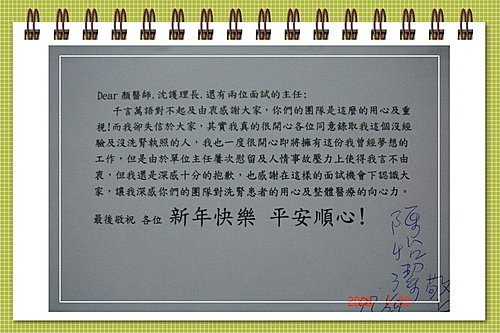 Dear 顏醫師.沈護理長.還有兩位面試的主任:
千言萬語對不起及由衷感謝大家，你們的團隊是這麼的用心及重
視!而我卻失信於大家，其實我真的很開心各位同意錄取我這個沒經
驗及沒洗腎執照的人，我也一度很開心即將擁有這份我曾經夢想的
工作，但是由於單位主任屢次慰留及人情事故壓力上使得我言不由
衷，但我還是深感十分的抱歉，也感謝在這樣的面試機會下認識大
家，讓我深感你們的團隊對洗腎患者的用心及整體醫療的向心力。
最後敬祝 各位 新年快樂 平安順心!
敬